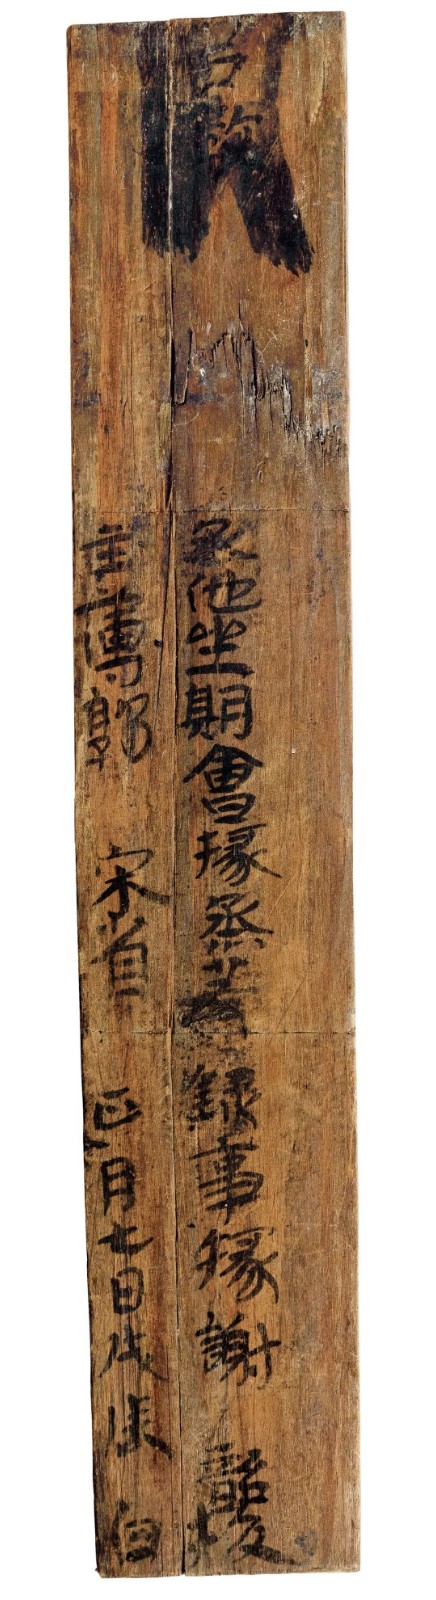 君教
丞他坐期會掾烝若錄事掾謝韶校
主簿郭 宋省 正月七日戊辰白